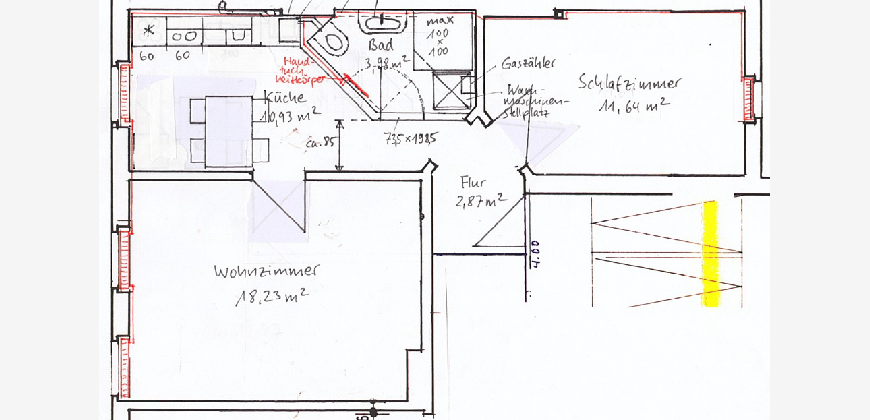 max
100
x
100
*
60
60
Bad
3,98m²
Hand-
tuch-
heizkörper
Gaszähler
Wasch-
maschinen-
stellplatz
Schlafzimmer
11,64 m²
Küche
10,93 m²
ca. 85
73,5 x 198,5
Flur
2,87m²
4.00
Wohnzimmer
18,23 m²